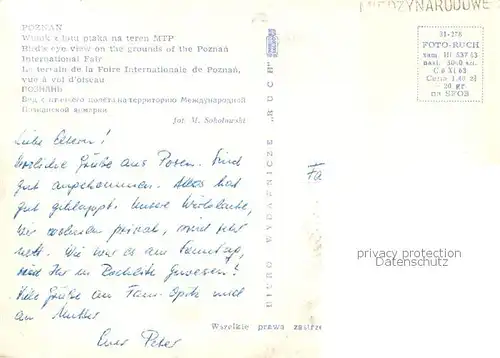 MIĘDZYNARODOWE
POZNAŃ
Widok z lotu ptaka na teren MTP
Bird's eye view on the grounds of the Poznań
International Fair
Le terrain de la Foire Internationale de Poznań,
vue à vol d'oiseau
ПОЗНАНЬ
Вид с птичьего полёта на территорию Международной
Познанской ярмарки
fot. M. Sokołowski
31-276
FOTO-RUCH
zam. III 537/63
nakł. 30.0 en.
C 9 XI 63
Cena 1,80 zł
20 gr.
na SFOS
BIURO WYDAWNICZE "RUCH"
Liebe Eltern!
Herzliche Grüße aus Posen. Sind
gut angekommen. Alles hat
gut geklappt. Unsere Wirtsleute,
wir wohnen privat, sind sehr
nett. Wie war es am Samstag,
seid Ihr in gewesen?
Viele Grüße an Fam. Opitz und
an Mutter
Euer Peter
Fa
privacy protection
Datenschutz
Wszelkie prawa zastrze